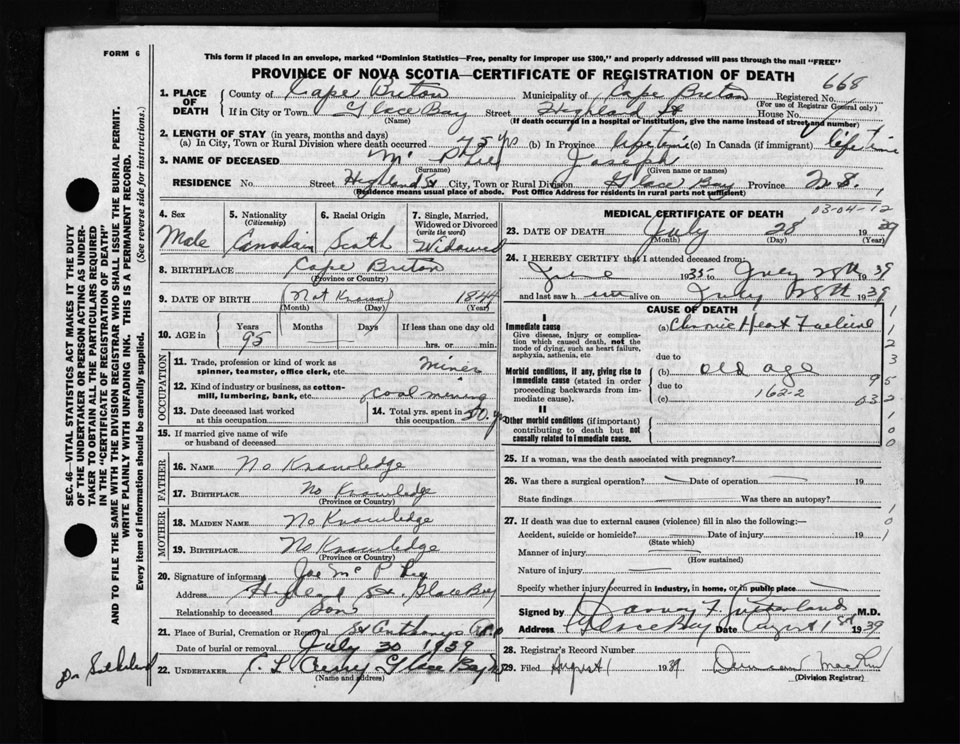 FORM 6
This form if placed in an envelope, marked "Dominion Statistics—Free, penalty for improper use $300," and properly addressed will pass through the mail "FREE"
PROVINCE OF NOVA SCOTIA—CERTIFICATE OF REGISTRATION OF DEATH
668
1. PLACE OF DEATH
County of Cape Breton Municipality of Cape Breton Registered No.
(For use of Registrar General only)
If in City or Town Glace Bay Street Highland St House No.
(Name) (If death occurred in a hospital or institution, give the name instead of street and number)
2. LENGTH OF STAY (in years, months and days)
(a) In City, Town or Rural Division where death occurred 75 yrs (b) In Province lifetime (c) In Canada (if immigrant) lifetime
3. NAME OF DECEASED Mc Phee Joseph
(Surname) (Given name or names)
RESIDENCE No. Street Highland St City, Town or Rural Division Glace Bay Province N.S.
(Residence means usual place of abode. Post Office Address for residents in rural parts not sufficient)
4. Sex Male
5. Nationality (Citizenship) Canadain
6. Racial Origin Scoth
7. Single, Married, Widowed or Divorced (write the word) Widowed
8. BIRTHPLACE Cape Breton
(Province or Country)
9. DATE OF BIRTH (Not Known) 1844
(Month) (Day) (Year)
10. AGE in Years 95 Months Days If less than one day old
hrs. or min.
OCCUPATION
11. Trade, profession or kind of work as spinner, teamster, office clerk, etc. Miner
12. Kind of industry or business, as cotton-mill, lumbering, bank, etc. coal mining
13. Date deceased last worked at this occupation
14. Total yrs. spent in this occupation 50 yrs
15. If married give name of wife or husband of deceased
FATHER
16. NAME No Knowledge
17. BIRTHPLACE No Knowledge
(Province or Country)
MOTHER
18. MAIDEN NAME No Knowledge
19. BIRTHPLACE No Knowledge
(Province or Country)
20. Signature of informant Joe Mc Phee
Address Highland St. Glace Bay
Relationship to deceased Son
21. Place of Burial, Cremation or Removal St Anthonys
Date of burial or removal July 30 1939
22. UNDERTAKER Glace Bay
(Name and address)
MEDICAL CERTIFICATE OF DEATH
03-04-12
23. DATE OF DEATH July 28 1939
(Month) (Day) (Year)
24. I HEREBY CERTIFY that I attended deceased from:
June 1935 to July 28th 1939
and last saw h im alive on July 28th 1939
CAUSE OF DEATH
I
Immediate cause
Give disease, injury or complication which caused death, not the mode of dying, such as heart failure, asphyxia, asthenia, etc
(a) Chronic Heart Failure
due to
Morbid conditions, if any, giving rise to immediate cause (stated in order proceeding backwards from immediate cause).
(b) old age
due to
162-2
(c)
II
Other morbid conditions (if important) contributing to death but not causally related to immediate cause.
1
1
2
3
95
032
1
0
0
25. If a woman, was the death associated with pregnancy?
26. Was there a surgical operation? Date of operation 19
State findings Was there an autopsy?
27. If death was due to external causes (violence) fill in also the following:—
Accident, suicide or homicide? Date of injury 19
(State which)
Manner of injury
(How sustained)
Nature of injury
Specify whether injury occurred in industry, in home, or in public place
1
0
1
Signed by Harvey F Sutherland M.D.
Address Glace Bay Date August 1st 1939
28. Registrar's Record Number
29. Filed August 1 1939
(Division Registrar)
SEC. 46—VITAL STATISTICS ACT MAKES IT THE DUTY OF THE UNDERTAKER OR PERSON ACTING AS UNDERTAKER TO OBTAIN ALL THE PARTICULARS REQUIRED IN THE "CERTIFICATE OF REGISTRATION OF DEATH" AND TO FILE THE SAME WITH THE DIVISION REGISTRAR WHO SHALL ISSUE THE BURIAL PERMIT.
WRITE PLAINLY WITH UNFADING INK. THIS IS A PERMANENT RECORD.
Every item of information should be carefully supplied. (See reverse side for instructions.)
Dr Sutherland